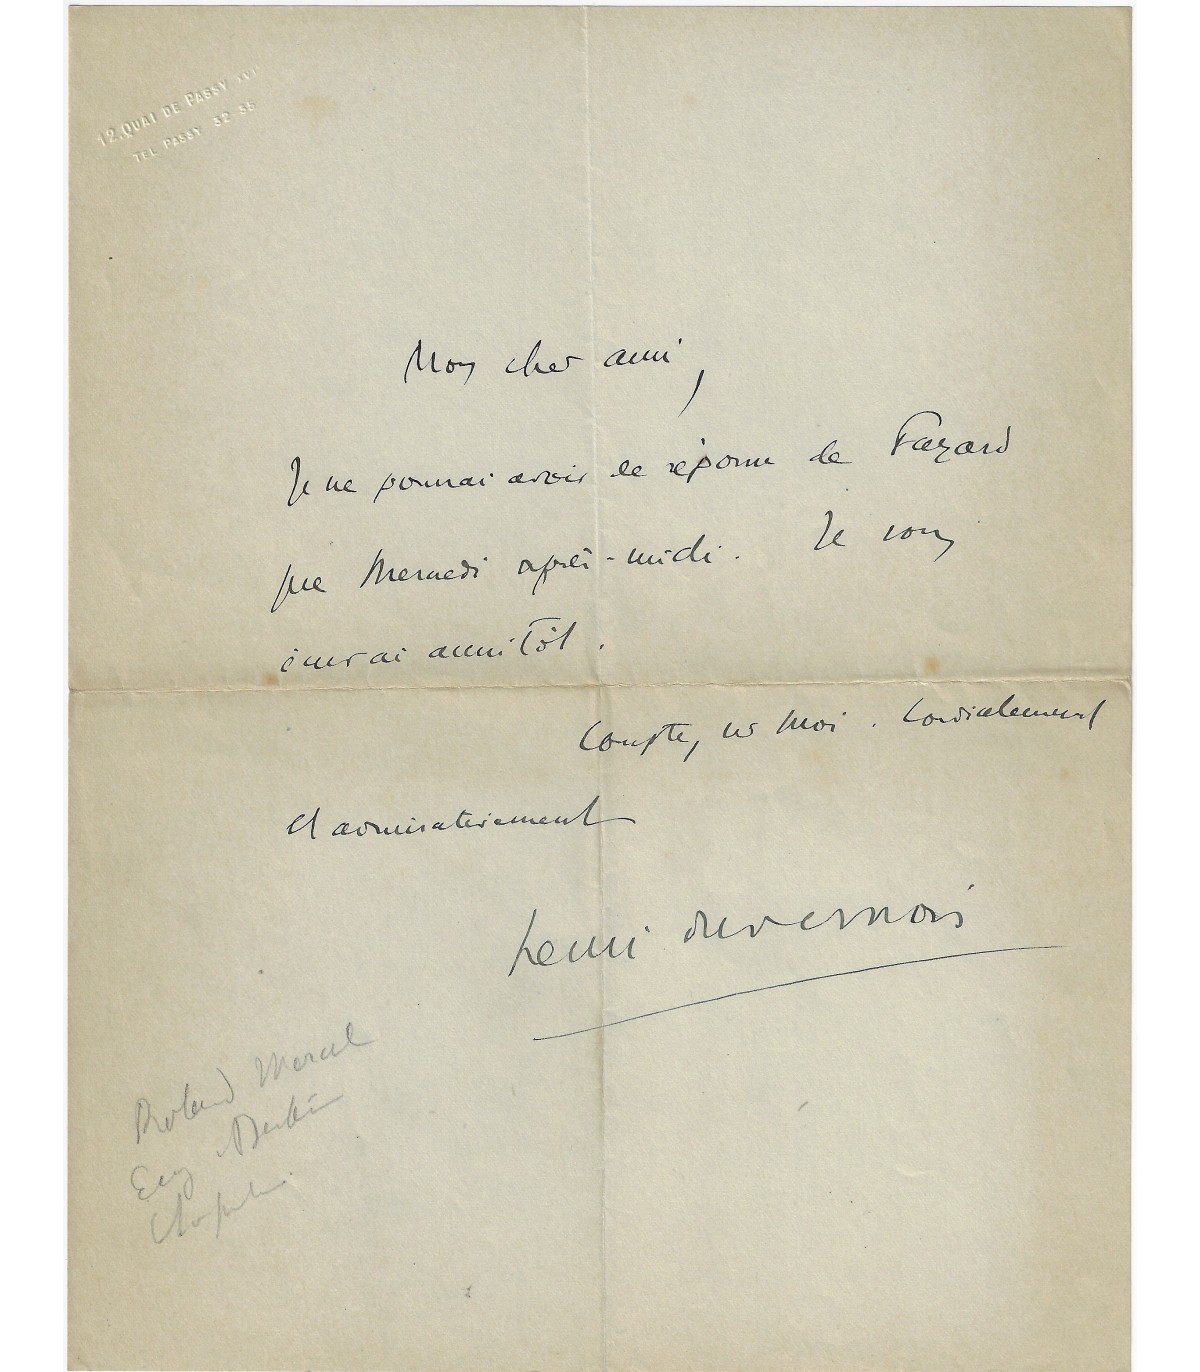 12, QUAI DE PASSY XVIᵉ
TEL PASSY 32 35
Mon cher ami,
Je ne pourrai avoir la réponse de Fayard
que Mercredi après-midi. Je vous
écrirai aussitôt.
Comptez sur moi. Cordialement
et admirativement
Henri Duvernois
Roland Marcel